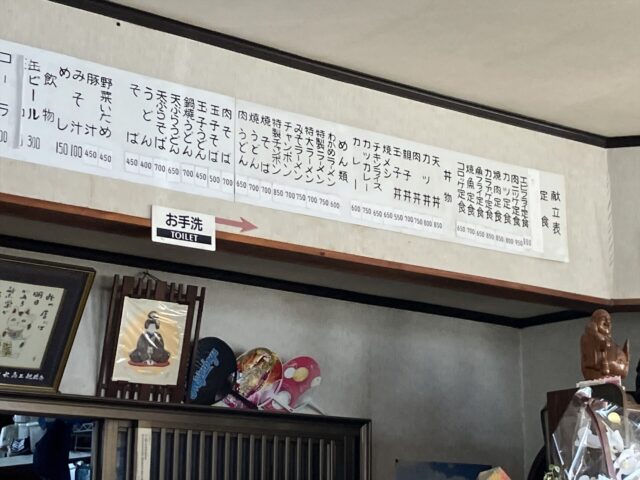 献立表
定食
エビフライ定食
カツ定食
焼肉定食
魚フライ定食
焼魚定食
コロッケ定食
丼物
天丼 850
カツ丼 800
肉丼 750
親子丼 700
玉子丼 650
焼メシ 650
チキンライス 650
カツカレー 750
カレー 600
めん類
わかめラーメン 600
特製ラーメン
みそラーメン
チャンポン
特製チャンポン
焼そば
焼うどん
肉うどん
肉そば 700
玉子そば 500
玉子うどん 500
鍋焼うどん
天ぷらうどん
天ぷらそば
うどん 400
そば 450
野菜いため 450
豚汁 450
みそ汁 100
めし 150
飲物
缶ビール 300
コーラ
お手洗
TOILET